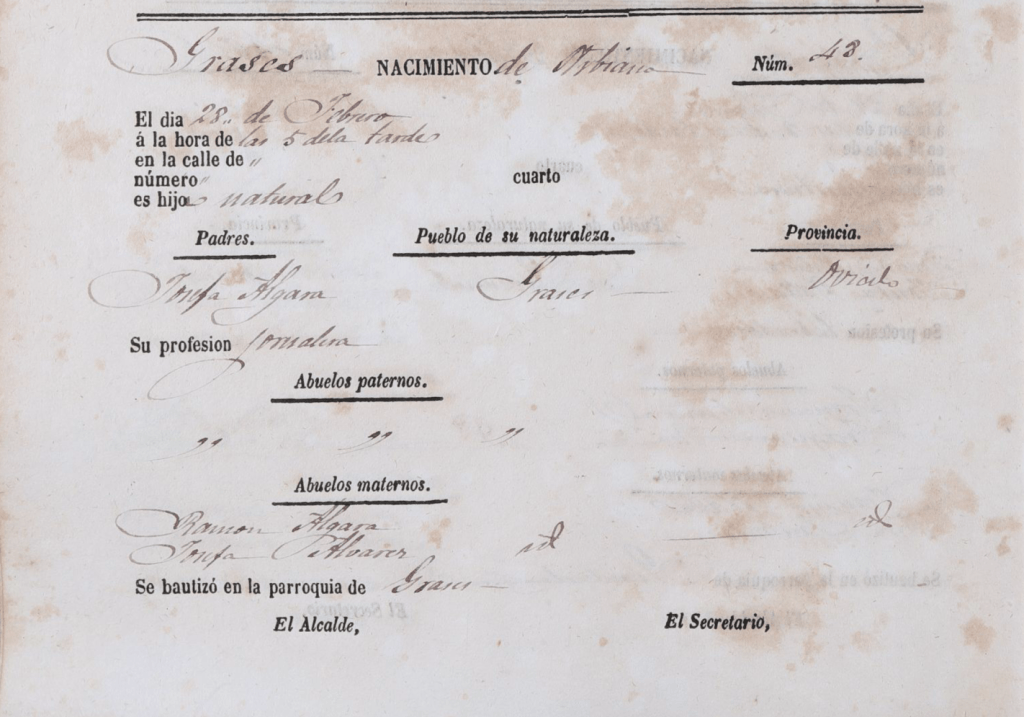 Grases NACIMIENTO de Urbiana Núm. 43.
El dia 28,, de Febrero
á la hora de las 5 dela tarde
en la calle de ,,
número ,, cuarto
es hijo natural
Padres. Pueblo de su naturaleza. Provincia.
Josefa Algara Grases — Oviedo
Su profesion jornalera
Abuelos paternos.
,, ,, ,,
Abuelos maternos.
Ramon Algara
Josefa Alvarez id — id
Se bautizó en la parroquia de Grases —
El Alcalde, El Secretario,